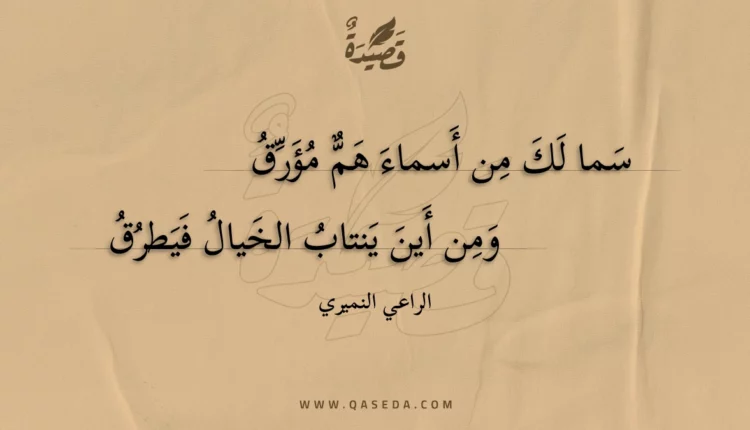 قَصِيدَةٌ
سَما لَكَ مِن أَسماءَ هَمٌّ مُؤَرِّقُ
وَمِن أَينَ يَنتابُ الخَيالُ فَيَطرُقُ
الراعي النميري
WWW.QASEDA.COM